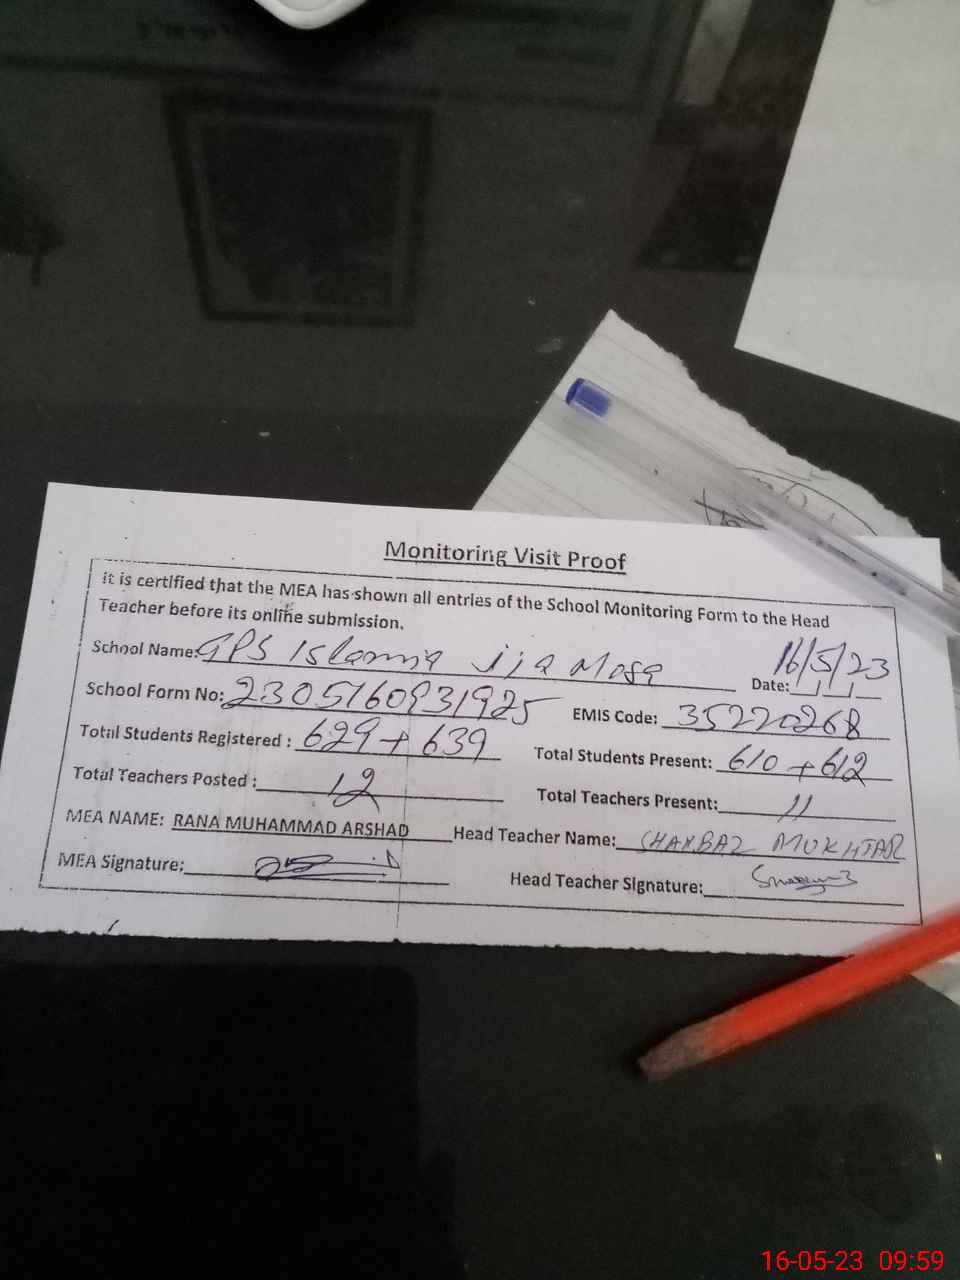 Monitoring Visit Proof
It is certified that the MEA has shown all entries of the School Monitoring Form to the Head
Teacher before its online submission.
School Name: GPS Islamia Date: 16/5/23
School Form No: 2305160931925 EMIS Code: 35220268
Total Students Registered : 629 + 639 Total Students Present: 610 + 612
Total Teachers Posted : 12 Total Teachers Present: 11
MEA NAME: RANA MUHAMMAD ARSHAD Head Teacher Name: SHAHBAZ MUKHTAR
MEA Signature: Head Teacher Signature:
16-05-23 09:59